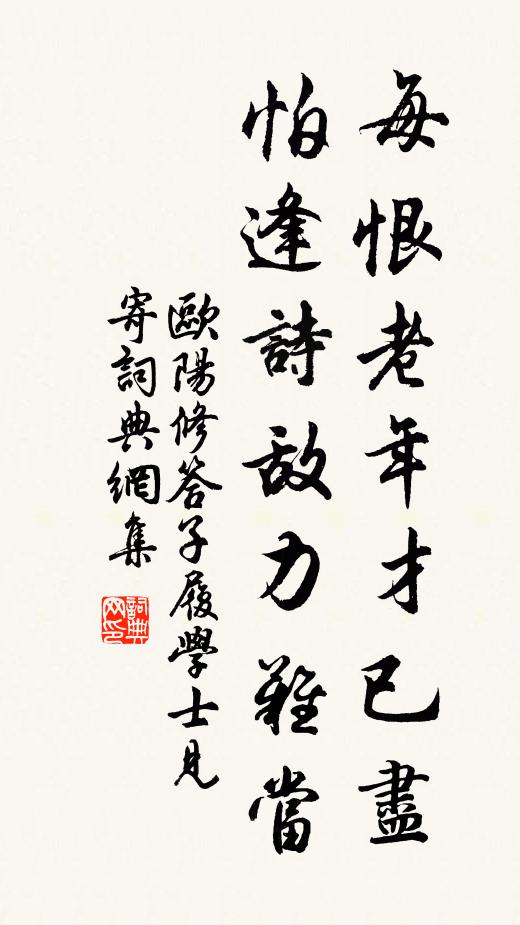 每恨老年才已盡
怕逢詩敌力難當
歐陽修答子履學士見
寄詞典網集
詞典
网印